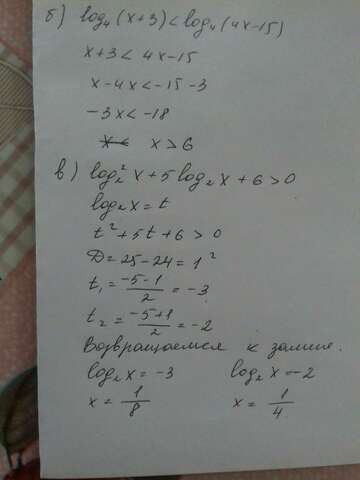 б) log₄(x+3)<log₄(4x-15)
x+3< 4x-15
x-4x<-15-3
-3x<-18
x> 6
в) log₂²x+5log₂x+6>0
log₂x=t
t²+5t+6>0
D=25-24=1²
t₁=(-5-1)/2=-3
t₂=(-5+1)/2=-2
Возвращаемся к замене.
log₂x=-3 log₂x=-2
x=1/8 x=1/4